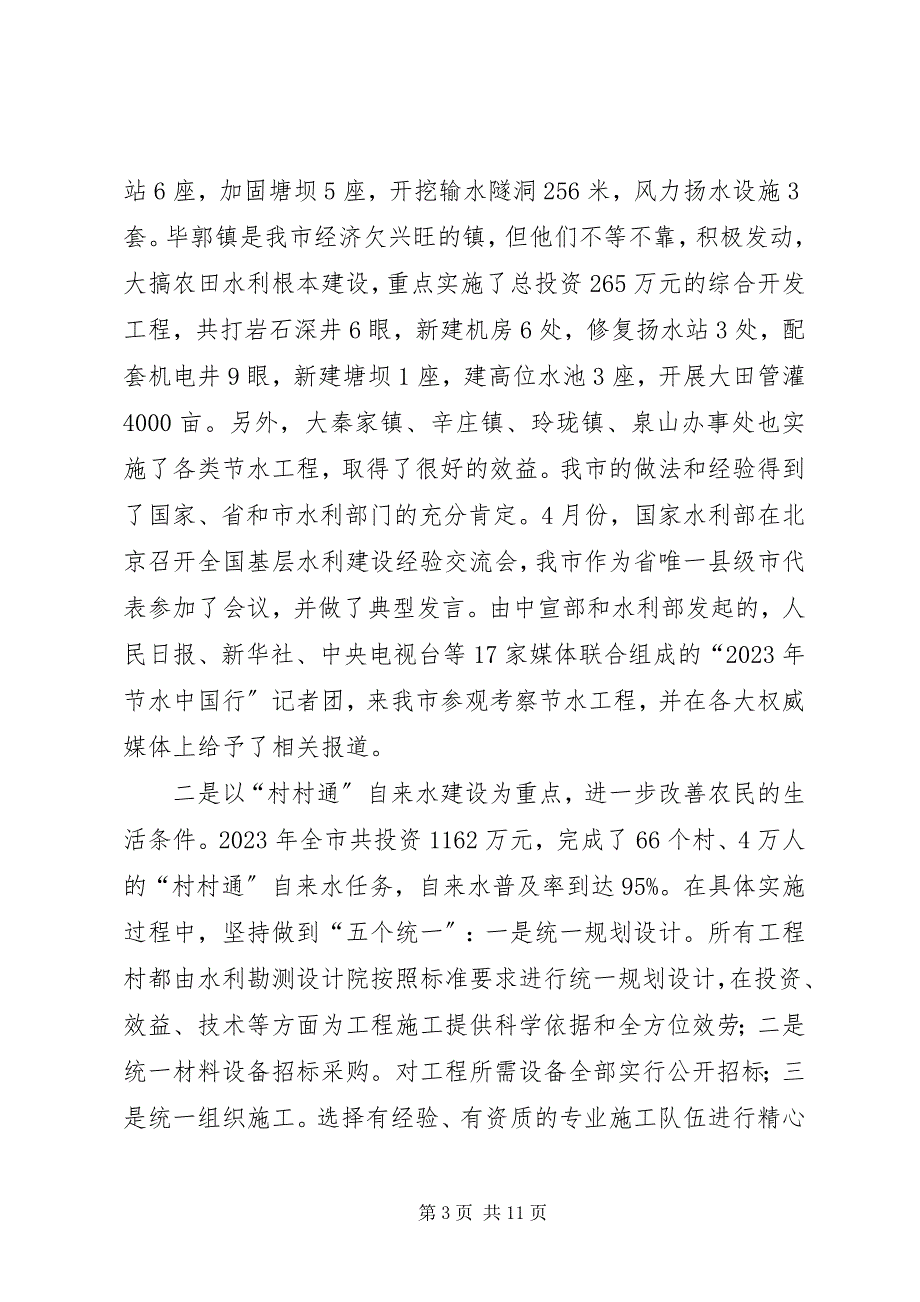 站 6 座，加固塘坝 5 座，开挖输水隧洞 256 米，风力扬水设施 3
套。毕郭镇是我市经济欠兴旺的镇，但他们不等不靠，积极发动，
大搞农田水利根本建设，重点实施了总投资 265 万元的综合开发
工程，共打岩石深井 6 眼，新建机房 6 处，修复扬水站 3 处，配
套机电井 9 眼，新建塘坝 1 座，建高位水池 3 座，开展大田管灌
4000 亩。另外，大秦家镇、辛庄镇、玲珑镇、泉山办事处也实
施了各类节水工程，取得了很好的效益。我市的做法和经验得到
了国家、省和市水利部门的充分肯定。4 月份，国家水利部在北
京召开全国基层水利建设经验交流会，我市作为省唯一县级市代
表参加了会议，并做了典型发言。由中宣部和水利部发起的，人
民日报、新华社、中央电视台等 17 家媒体联合组成的“2023 年
节水中国行〞记者团，来我市参观考察节水工程，并在各大权威
媒体上给予了相关报道。
二是以“村村通〞自来水建设为重点，进一步改善农民的生
活条件。2023 年全市共投资 1162 万元，完成了 66 个村、4 万人
的“村村通〞自来水任务，自来水普及率到达 95%。在具体实施
过程中，坚持做到“五个统一〞：一是统一规划设计。所有工程
村都由水利勘测设计院按照标准要求进行统一规划设计，在投资、
效益、技术等方面为工程施工提供科学依据和全方位效劳；二是
统一材料设备招标采购。对工程所需设备全部实行公开招标；三
是统一组织施工。选择有经验、有资质的专业施工队伍进行精心
第 3 页 共 11 页